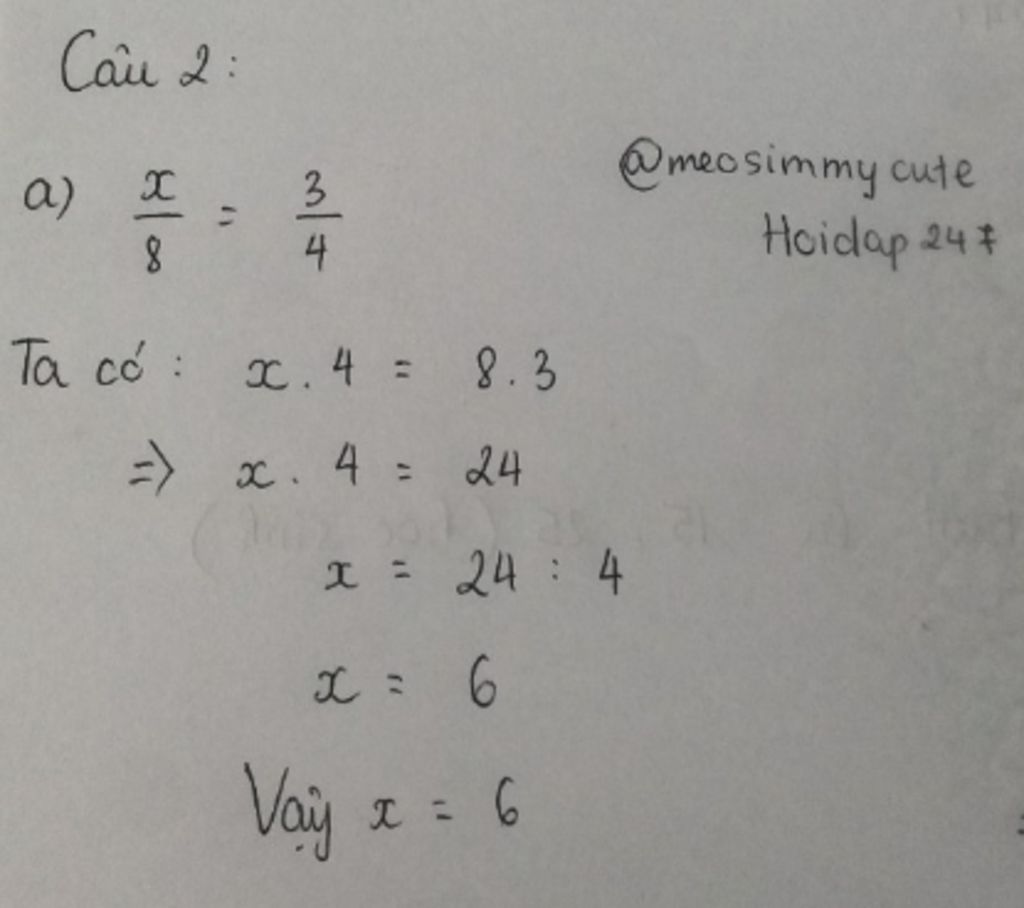 Câu 2:
a) x/8 = 3/4
@meosimmy cute
Hoidap 247
Ta có: x . 4 = 8 . 3
=> x . 4 = 24
x = 24 : 4
x = 6
Vậy x = 6